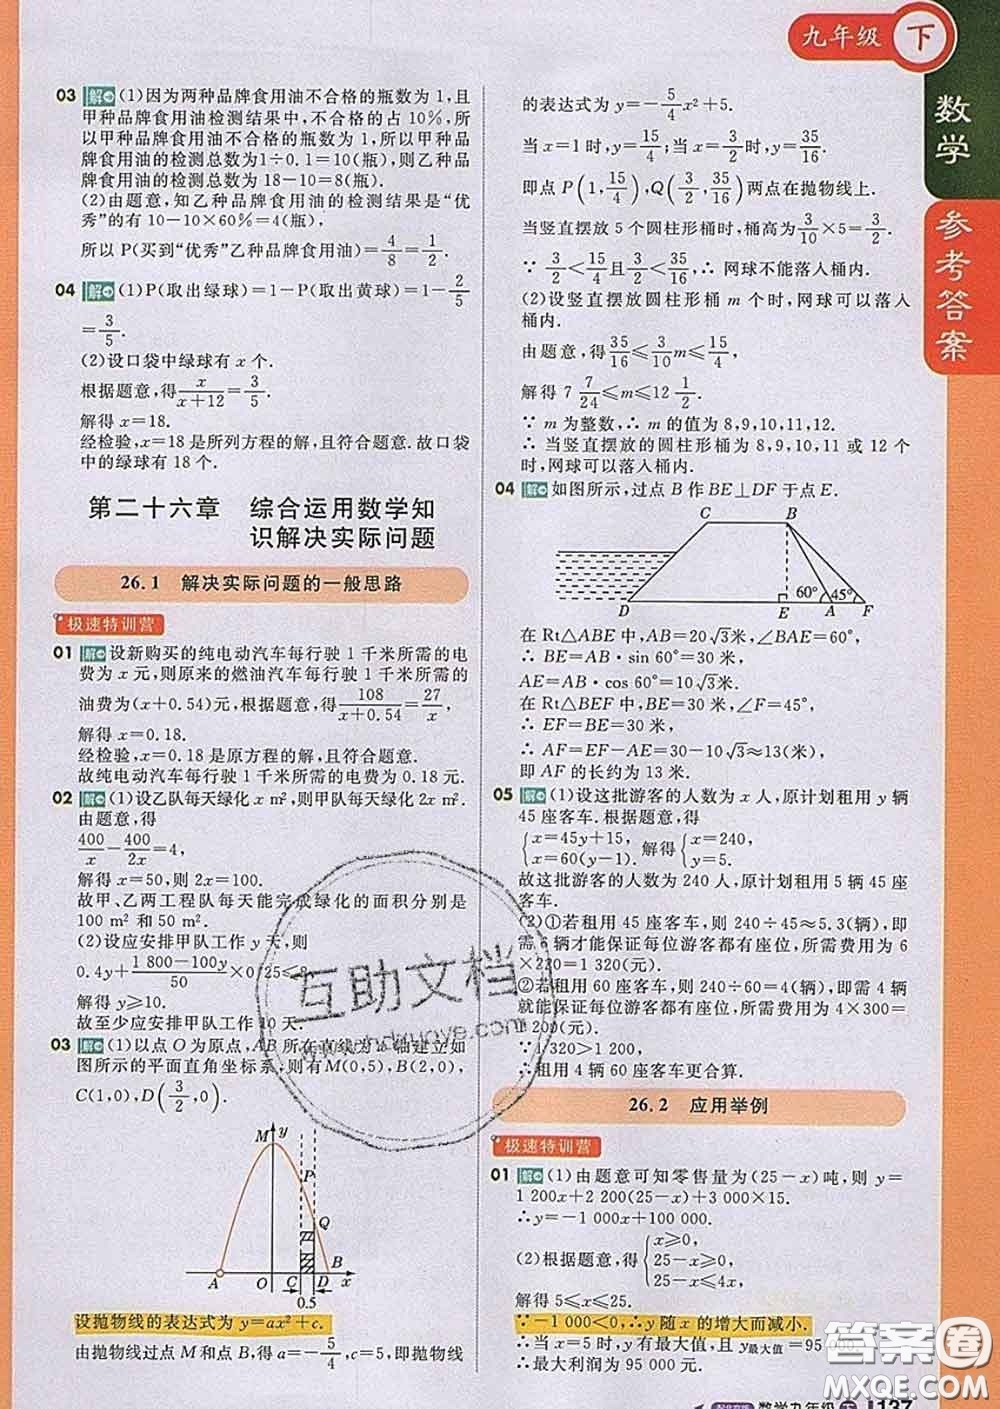 九年级 下
数学
参考答案
03 解 (1)因为两种品牌食用油不合格的瓶数为1,且
甲种品牌食用油检测结果中,不合格的占10%,所
以甲种品牌食用油不合格的瓶数为1,所以甲种品
牌食用油的检测总数为1÷0.1=10(瓶),则乙种品
牌食用油的检测总数为18-10=8(瓶).
(2)由题意,知乙种品牌食用油的检测结果是“优
秀”的有10-10×60%=4(瓶).
所以P(买到“优秀”乙种品牌食用油)=4/8=1/2.
04 解 (1)P(取出绿球)=1-P(取出黄球)=1-2/5
=3/5.
(2)设口袋中绿球有x个.
根据题意,得x/(x+12)=3/5.
解得x=18.
经检验,x=18是所列方程的解,且符合题意.故口袋
中的绿球有18个.
第二十六章 综合运用数学知
识解决实际问题
26.1 解决实际问题的一般思路
极速特训营
01 解 设新购买的纯电动汽车每行驶1千米所需的电
费为x元,则原来的燃油汽车每行驶1千米所需的
油费为(x+0.54)元,根据题意,得108/(x+0.54)=27/x,
解得x=0.18.
经检验,x=0.18是原方程的解,且符合题意.
故纯电动汽车每行驶1千米所需的电费为0.18元.
02 解 (1)设乙队每天绿化x m²,则甲队每天绿化2x m².
由题意,得
400/x-400/2x=4,
解得x=50,则2x=100.
故甲、乙两工程队每天能完成绿化的面积分别是
100 m²和50 m².
(2)设应安排甲队工作y天,则
0.4y+(1 800-100y)/50×0.25≤8,
解得y≥10.
故至少应安排甲队工作10天.
03 解 (1)以点O为原点,AB所在直线为x轴建立如
图所示的平面直角坐标系,则有M(0,5),B(2,0),
C(1,0),D(3/2,0).
M y
P
Q
A O C D B x
0.5
设抛物线的表达式为y=ax²+c.
由抛物线过点M和点B,得a=-5/4,c=5,即抛物线
的表达式为y=-5/4x²+5.
当x=1时,y=15/4;当x=3/2时,y=35/16.
即点P(1,15/4),Q(3/2,35/16)两点在抛物线上.
当竖直摆放5个圆柱形桶时,桶高为3/10×5=3/2.
∵3/2<15/4且3/2<35/16,∴网球不能落入桶内.
(2)设竖直摆放圆柱形桶m个时,网球可以落入
桶内.
由题意,得35/16≤3/10m≤15/4,
解得7 7/24≤m≤12 1/2.
∵m为整数,∴m的值为8,9,10,11,12.
∴当竖直摆放的圆柱形桶为8,9,10,11或12个
时,网球可以落入桶内.
04 解 如图所示,过点B作BE⊥DF于点E.
C B
60° 45°
D E A F
在Rt△ABE中,AB=20√3米,∠BAE=60°,
∴BE=AB·sin 60°=30米,
AE=AB·cos 60°=10√3米.
在Rt△BEF中,BE=30米,∠F=45°,
∴EF=BE=30米.
∴AF=EF-AE=30-10√3≈13(米),
即AF的长约为13米.
05 解 (1)设这批游客的人数为x人,原计划租用y辆
45座客车.根据题意,得
{x=45y+15, 解得{x=240,
{x=60(y-1). {y=5.
故这批游客的人数为240人,原计划租用5辆45座
客车.
(2)①若租用45座客车,则240÷45≈5.3(辆),即
需6辆才能保证每位游客都有座位,所需费用为6
×220=1 320(元).
②若租用60座客车,则240÷60=4(辆),即需4辆
就能保证每位游客都有座位,所需费用为4×300=
1 200(元).
∵1 320>1 200,
∴租用4辆60座客车更合算.
26.2 应用举例
极速特训营
01 解 (1)由题意可知零售量为(25-x)吨,则y=
1 200x+2 200(25-x)=3 000×15.
∴y=-1 000x+100 000.
(2)根据题意,得{x≥0,
25-x≥0,
25-x≤4x,
解得5≤x≤25.
∵-1 000<0,∴y随x的增大而减小.
∴当x=5时,y有最大值,且y最大值=95
∴最大利润为95 000元.
数学九年级 下 137
互助文档
答案圈
MXQE.COM